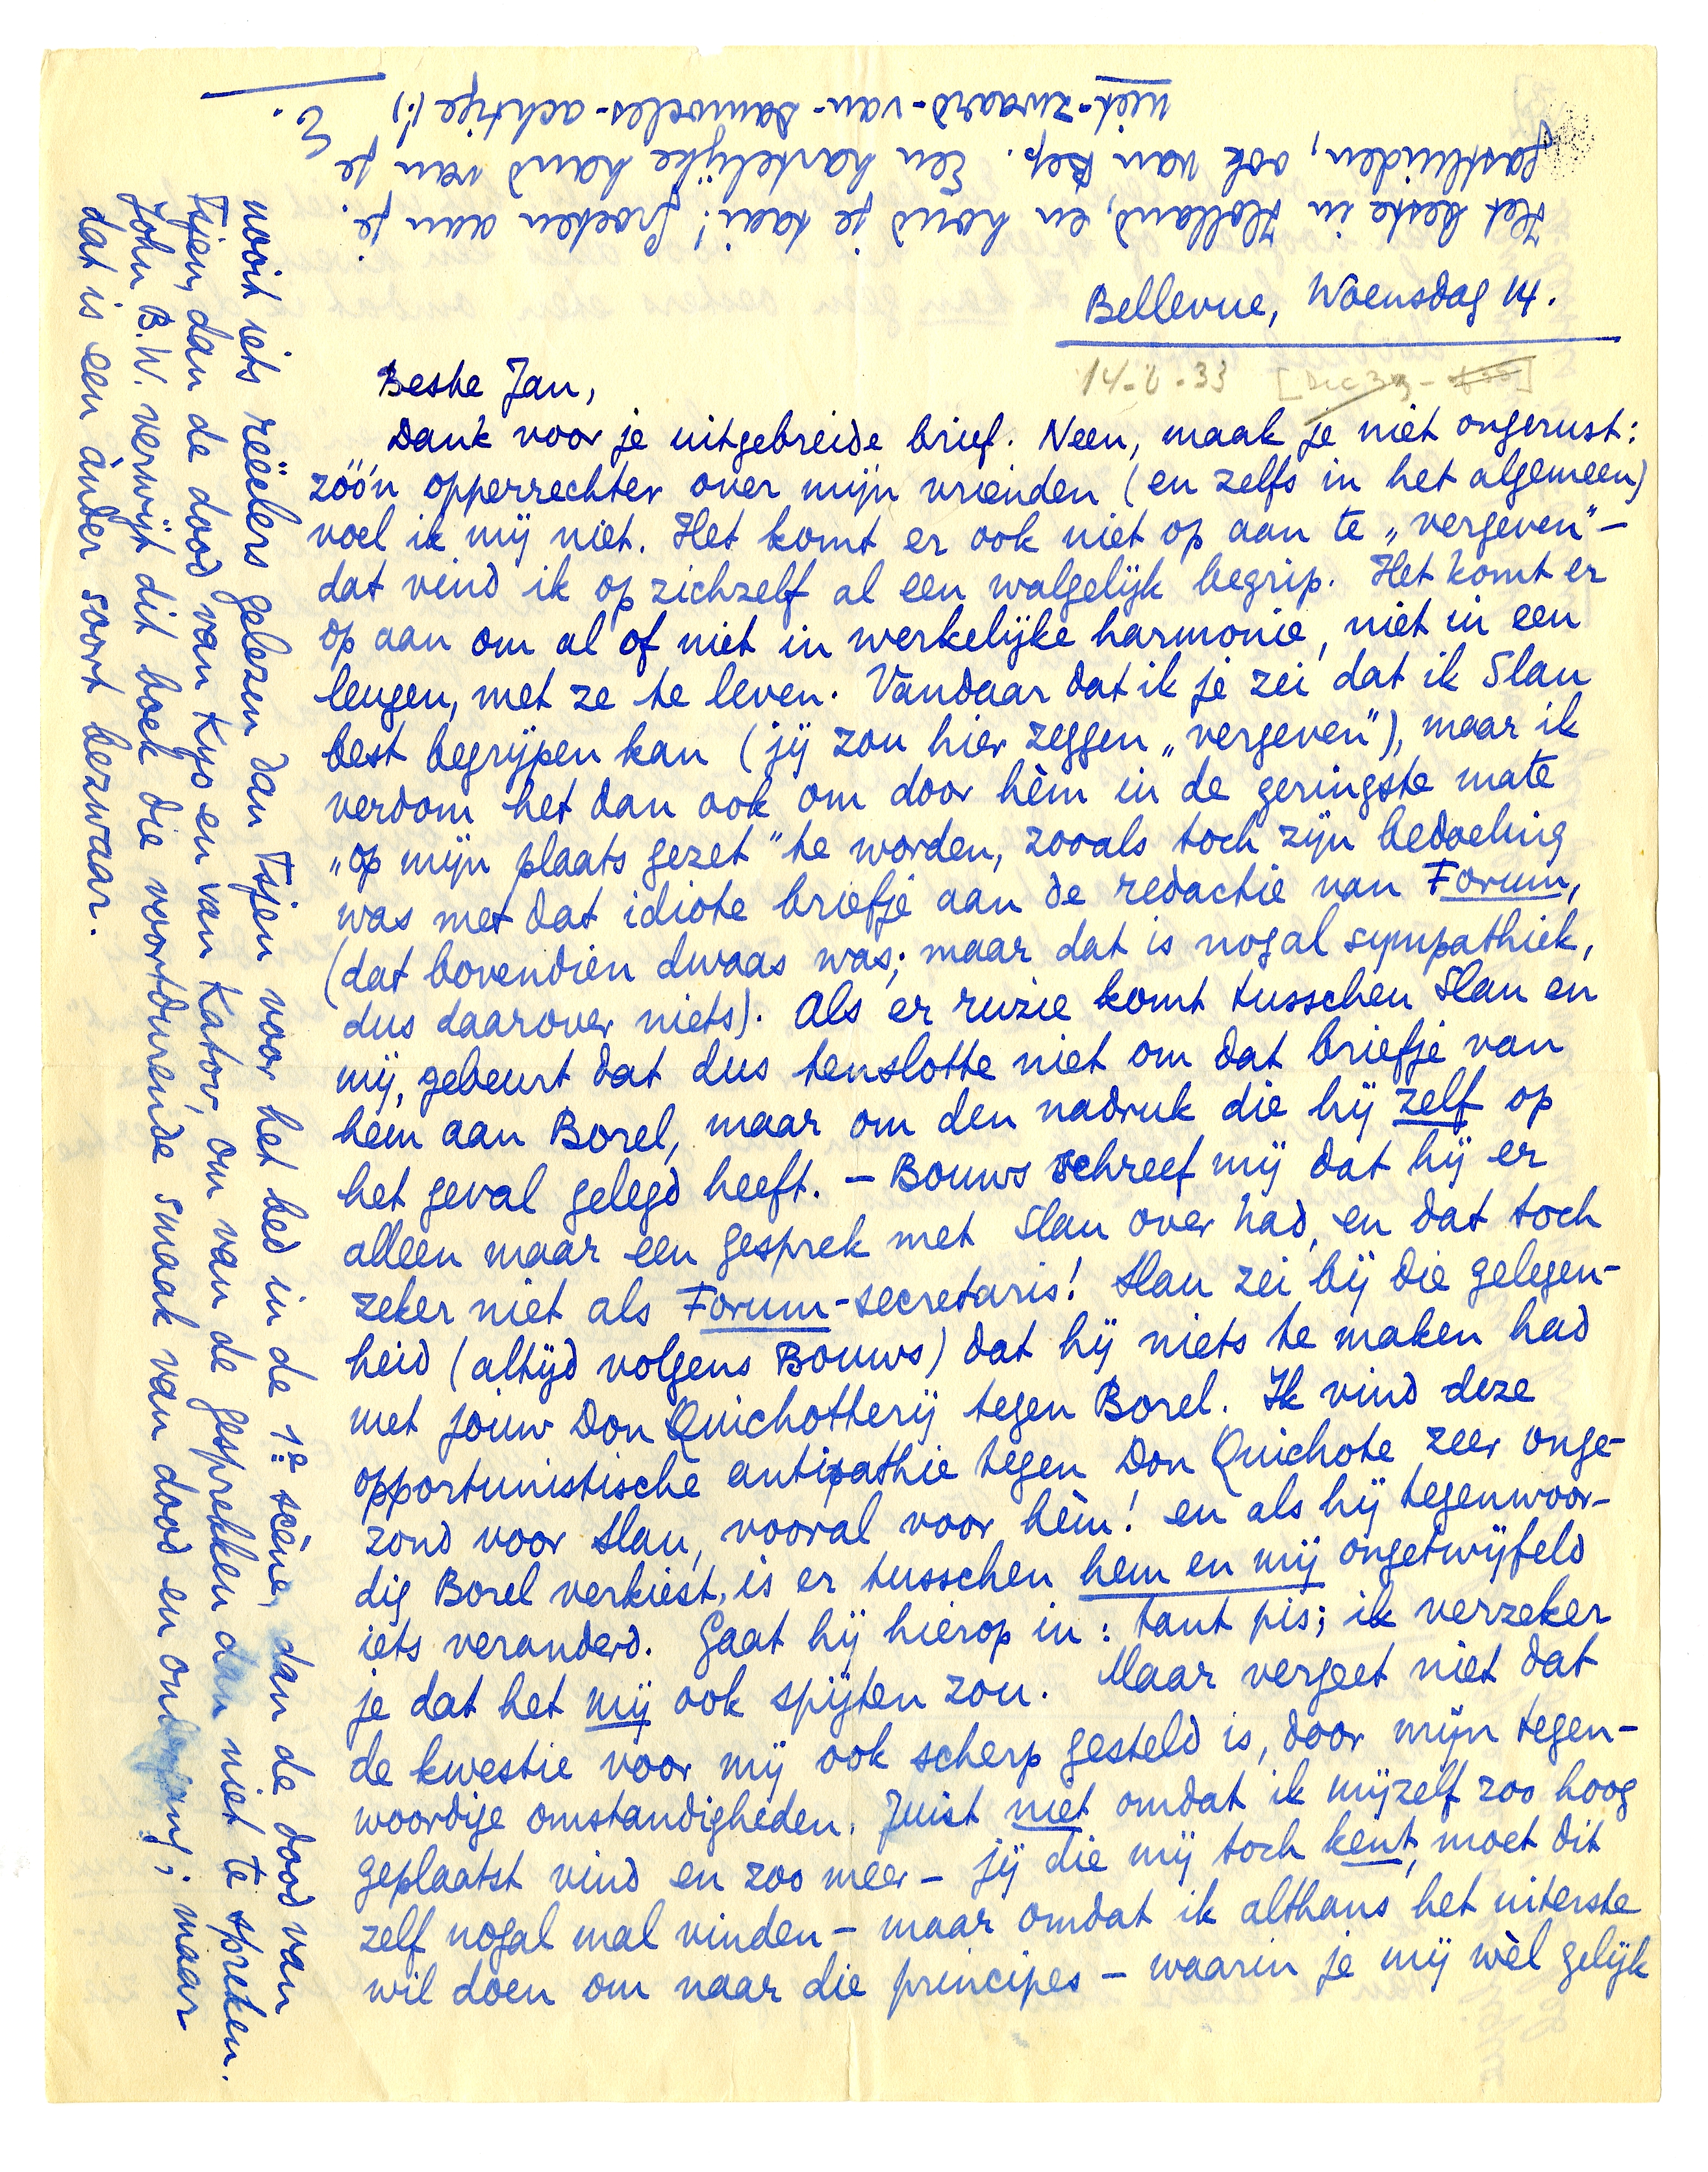 Bellevue, Woensdag 14.
14-6-33
Beste Jan,
Dank voor je uitgebreide brief. Neen, maak je niet ongerust:
zóó'n opperrechter over mijn vrienden (en zelfs in het algemeen)
voel ik mij niet. Het komt er ook niet op aan te „vergeven” –
dat vind ik op zichzelf al een walgelijk begrip. Het komt er
op aan om al of niet in werkelijke harmonie, niet in een
leugen, met ze te leven. Vandaar dat ik je zei dat ik Slau
best begrijpen kan (jij zou hier zeggen „vergeven”), maar ik
verdom het dan ook om door hèm in de geringste mate
„op mijn plaats gezet” te worden, zooals toch zijn bedoeling
was met dat idiote briefje aan de redactie van Forum,
(dat bovendien dwaas was; maar dat is nogal sympathiek,
dus daarover niets). Als er ruzie komt tusschen Slau en
mij, gebeurt dat dus tenslotte niet om dat briefje van
hem aan Borel, maar om den nadruk die hij zelf op
het geval gelegd heeft. – Bouws schreef mij dat hij er
alleen maar een gesprek met Slau over had, en dat toch
zeker niet als Forum-secretaris! Slau zei bij die gelegen-
heid (altijd volgens Bouws) dat hij niets te maken had
met jouw Don Quichotterij tegen Borel. Ik vind deze
opportunistische antipathie tegen Don Quichote zeer onge-
zond voor Slau, vooral voor hèm! en als hij tegenwoor-
dig Borel verkiest, is er tusschen hem en mij ongetwijfeld
iets veranderd. Gaat hij hierop in: tant pis; ik verzeker
je dat het mij ook spijten zou. Maar vergeet niet dat
de kwestie voor mij ook scherp gesteld is, door mijn tegen-
woordige omstandigheden. Juist niet omdat ik mijzelf zoo hoog
geplaatst vind en zoo meer – jij die mij toch kent, moet dit
zelf nogal mal vinden – maar omdat ik althans het uiterste
wil doen om naar die principes – waarin je mij wèl gelijk
nooit iets reëelers gelezen dan Tsjen voor het bed in de 1e scène, dan de dood van
Tsjen, dan de dood van Kyo en van Katov, om van de gesprekken dan niet te spreken.
John B.W. verwijt dit boek die voortdurende smaak van dood en ; maar
dat is een ànder soort bezwaar.
Het beste in Holland, en houd je taai! Groeten aan je
gastluiden, ook van Bep. Een hartelijke hand van je
niet-zwaard-van-Damocles-achtige (!)
E.